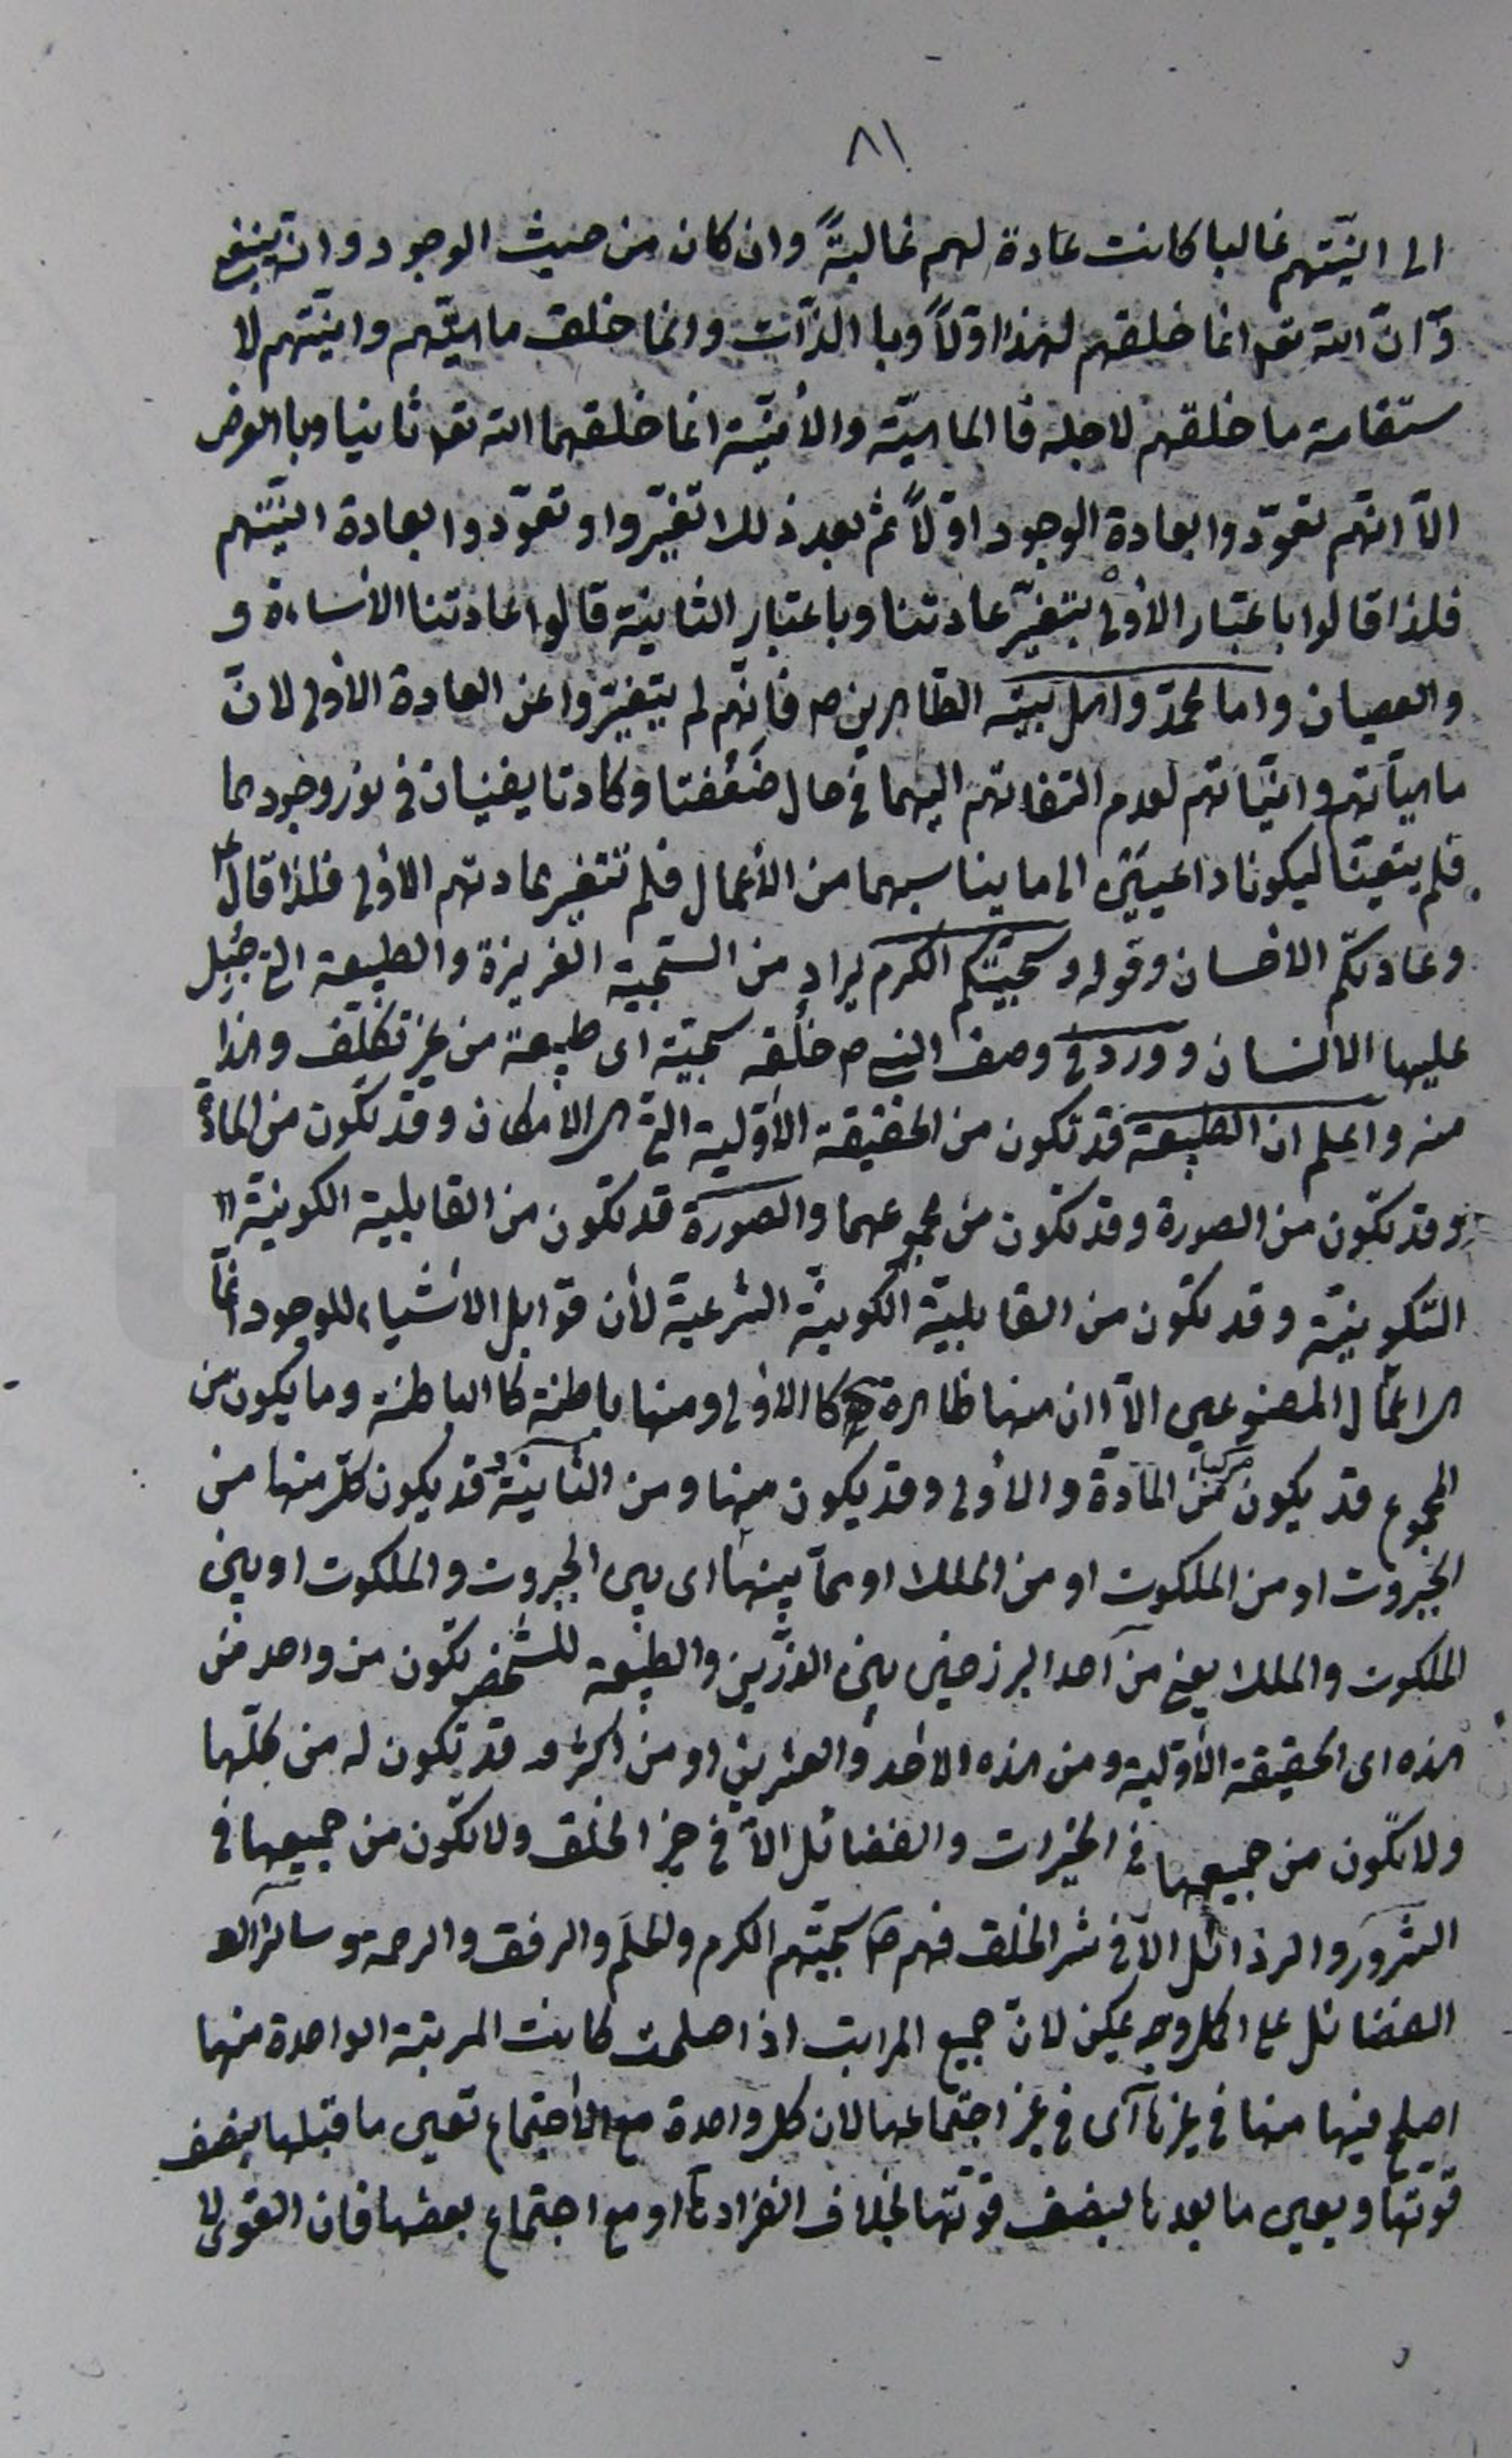 ٨١
الى انيّتهم غالبا كانت عادة لهم غالبةً وان كان من حيث الوجود وانه ينبغى
وّ انّ الله تعا انما خلقهم لهذا اوّلاً وبا الذّات وانما خلق ماهيّتهم وانيّتهم لا
ستقامة ما خلقهم لاجله فا الماهيّة والأنيّة انما خلقهما الله تعا ثانيا وبا العرض
الاّ انّهم تعوّدوا بعادة الوجود اوّلاً ثم بعد ذلك تغيّروا وتعوّدوا بعادة انيّتهم
فلذا قالوا باعتبار الأولى بتغيّر عادتنا وباعتبار الثانية قالوا عادتنا الأساءة و
والعصيان واما محمّد واهل بيته الطّاهرين ص فانّهم لم يتغيّروا عن العادة الأولى لانّ
ماهيّاتهم وانيّاتهم لعدم التفاتهم اليهما في حال ضَعُفتا وكادتا يفنيان في نور وجودهما
فلم يتعيّنا ليكونا داعيتين الى ما يناسبهما من الأعمال فلم تتغير عادتهم الاولى فلذا قال ع
وعادتكم الاحسان وقوله وسجيّتكم الكرم يراد من السّجيّة الغريزة والطبيعة التي جُبِل
عليها الانسان وورد في وصف النبي ص خلُقه سجيّة اى طبيعة من غير تكلّف وهذا
منه واعلم ان الطبيعة قد تكون من الحقيقة الأوّلية التي هي الامكان وقد تكون من المادّة
وقد تكون من الصورة وقد تكون من مجموعهما والصورة قد تكون من القابلية الكونيّة
التّكوينيّة وقد تكون من القابليّة الكونيّة الشرعيّة لأن قوابل الأشياء للوجود انّما
هي اعمال المصنوعين الاّ ان منها ظاهرة كا الاولى ومنها باطنة كا الباطنة وما يكون من
المجموع قد يكون مركبا من المادّة والأولى وقد يكون منها ومن الثانية وقد يكون كلّ منها من
الجبروت او من الملكوت او من الملك او ممّا بينها اى بين الجبروت والملكوت او بين
الملكوت والملك يعنى من احد البرزخين بين الذرّين والطبيعة للشخص تكون من واحد من
هذه اى الحقيقة الأوّلية ومن هذه الاحد والعشرين او من اكثر وقد تكون له من كلّها
ولا تكون من جميعها في الخيرات والفضائل الاّ في خير الخلق ولا تكون من جميعها في
الشرور والرذائل الاّ في شر الخلق فهم ص سجيّتهم الكرم والحلم والرفق والرحمة وسائر
الفضائل على اكمل وجه يمكن لانّ جميع المراتب اذا صلحت كانت المرتبة الواحدة منها
اصلح فيها منها في غيرها اى في غير اجتماعها لان كل واحدة مع الاجتماع تعين ما قبلها بضعف
قوّتها ويعين ما بعدها بضعف قوّتها بخلاف انفرادها او مع اجتماع بعضها فان القوى لا